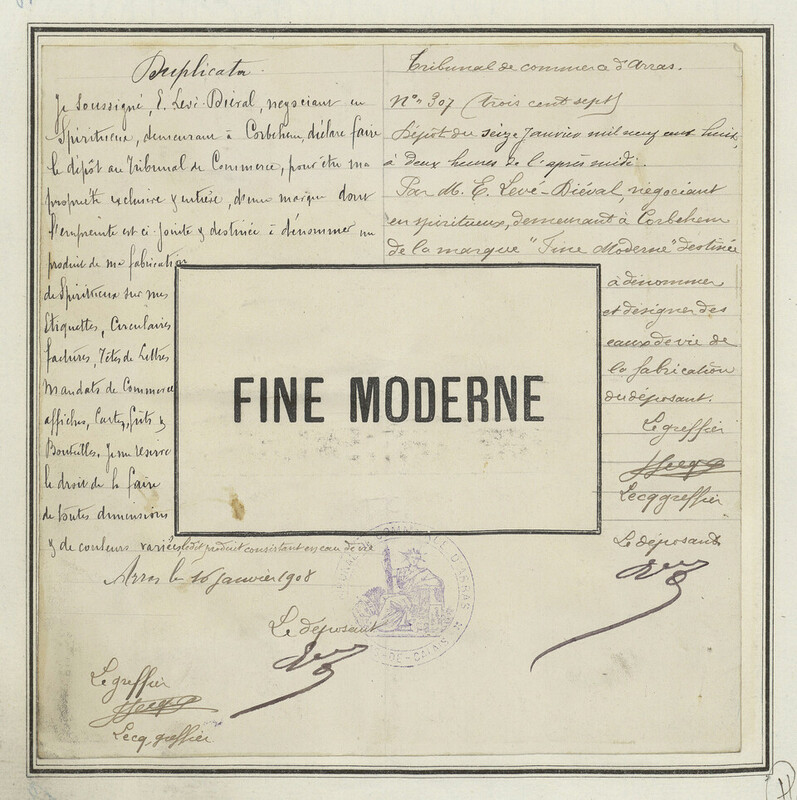 Duplicata
Je soussigné, E. Levé-Diéval, négociant en
Spiritueux, demeurant à Corbehem, déclare faire
le dépôt au Tribunal de Commerce, pour être ma
propriété exclusive & entière, d'une marque dont
l'empreinte est ci-jointe & destinée à dénommer un
produit de ma fabrication
de Spiritueux sur mes
Etiquettes, Circulaires
factures, Têtes de Lettres
Mandats de Commerce
affiches, Cartes, fûts &
Bouteilles. Je me réserve
le droit de la faire
de toutes dimensions
& de couleurs variées, ledit produit consistant en eau de vie
Arras le 16 Janvier 1908
Le déposant
Le greffier
Lecq, greffier
Tribunal de commerce d'Arras.
N° 307 (trois cent sept)
Dépôt du seize Janvier mil neuf cent huit,
à deux heures de l'après midi.
Par M. E. Levé-Diéval, négociant
en spiritueux, demeurant à Corbehem
de la marque "Fine Moderne" destinée
à dénommer
et désigner des
eaux de vie de
la fabrication
du déposant.
Le greffier
Lecq greffier
Le déposant
FINE MODERNE
TRIBUNAL DE COMMERCE D'ARRAS
PAS-DE-CALAIS